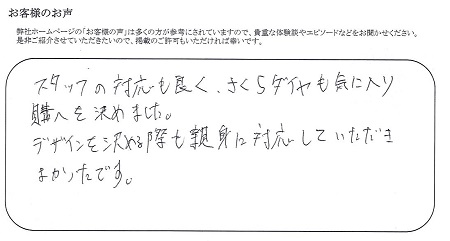 お客様のお声
弊社ホームページの「お客様の声」は多くの方が参考にされていますので、貴重な体験談やエピソードなどをお聞かせください。
是非ご紹介させていただきたいので、掲載のご許可もいただければ幸いです。
スタッフの対応も良く、さくらダイヤも気に入り
購入を決めました。
デザインを決める際も親身に対応していただき
よかったです。